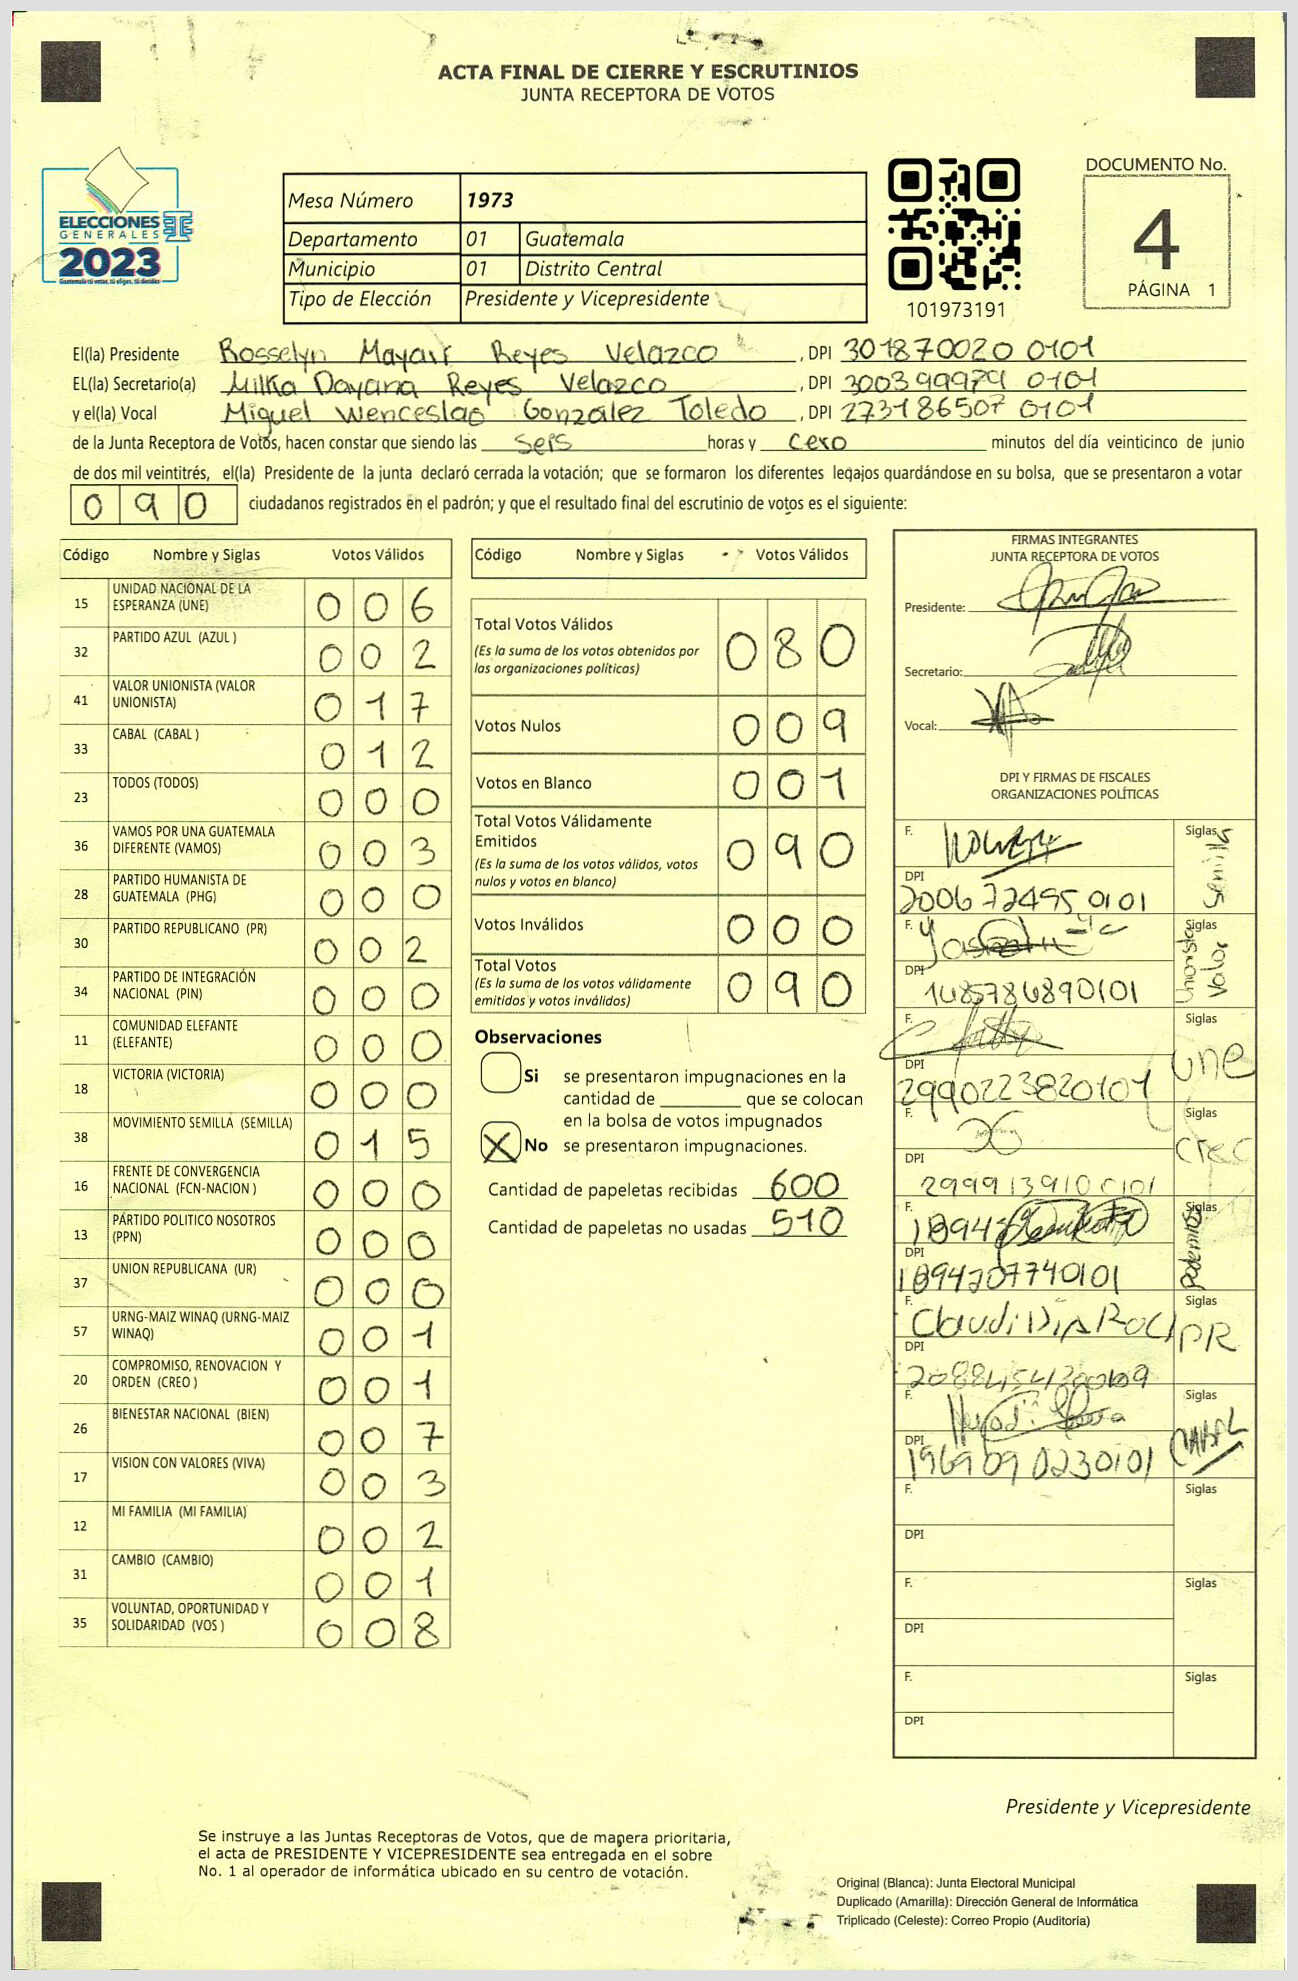 ACTA FINAL DE CIERRE Y ESCRUTINIOS
JUNTA RECEPTORA DE VOTOS
ELECCIONES
GENERALES
2023
Guatemala tú votas, tú eliges, tú decides
Mesa Número 1973
Departamento 01 Guatemala
Municipio 01 Distrito Central
Tipo de Elección Presidente y Vicepresidente
101973191
DOCUMENTO No.
4
PÁGINA 1
El(la) Presidente Rosselyn Mayair Reyes Velazco, DPI 301870020 0101
EL(la) Secretario(a) Milka Dayana Reyes Velazco, DPI 300399979 0101
y el(la) Vocal Miguel Wenceslao González Toledo, DPI 273186507 0101
de la Junta Receptora de Votos, hacen constar que siendo las seis horas y cero minutos del día veinticinco de junio
de dos mil veintitrés, el(la) Presidente de la junta declaró cerrada la votación; que se formaron los diferentes legajos guardándose en su bolsa, que se presentaron a votar
090 ciudadanos registrados en el padrón; y que el resultado final del escrutinio de votos es el siguiente:
Código Nombre y Siglas Votos Válidos
15 UNIDAD NACIONAL DE LA ESPERANZA (UNE) 006
32 PARTIDO AZUL (AZUL ) 002
41 VALOR UNIONISTA (VALOR UNIONISTA) 017
33 CABAL (CABAL ) 012
23 TODOS (TODOS) 000
36 VAMOS POR UNA GUATEMALA DIFERENTE (VAMOS) 003
28 PARTIDO HUMANISTA DE GUATEMALA (PHG) 000
30 PARTIDO REPUBLICANO (PR) 002
34 PARTIDO DE INTEGRACIÓN NACIONAL (PIN) 000
11 COMUNIDAD ELEFANTE (ELEFANTE) 000
18 VICTORIA (VICTORIA) 000
38 MOVIMIENTO SEMILLA (SEMILLA) 015
16 FRENTE DE CONVERGENCIA NACIONAL (FCN-NACION ) 000
13 PARTIDO POLITICO NOSOTROS (PPN) 000
37 UNION REPUBLICANA (UR) 000
57 URNG-MAIZ WINAQ (URNG-MAIZ WINAQ) 001
20 COMPROMISO, RENOVACION Y ORDEN (CREO ) 001
26 BIENESTAR NACIONAL (BIEN) 007
17 VISION CON VALORES (VIVA) 003
12 MI FAMILIA (MI FAMILIA) 002
31 CAMBIO (CAMBIO) 001
35 VOLUNTAD, OPORTUNIDAD Y SOLIDARIDAD (VOS ) 008
Código Nombre y Siglas Votos Válidos
Total Votos Válidos 080
(Es la suma de los votos obtenidos por
las organizaciones políticas)
Votos Nulos 009
Votos en Blanco 001
Total Votos Válidamente
Emitidos 090
(Es la suma de los votos válidos, votos
nulos y votos en blanco)
Votos Inválidos 000
Total Votos 090
(Es la suma de los votos válidamente
emitidos y votos inválidos)
Observaciones
Si se presentaron impugnaciones en la
cantidad de ________ que se colocan
en la bolsa de votos impugnados
X No se presentaron impugnaciones.
Cantidad de papeletas recibidas 600
Cantidad de papeletas no usadas 510
FIRMAS INTEGRANTES
JUNTA RECEPTORA DE VOTOS
Presidente:
Secretario:
Vocal:
DPI Y FIRMAS DE FISCALES
ORGANIZACIONES POLÍTICAS
F. Siglas Semilla
DPI 200672495 0101
F. Siglas Unionista Valor
DPI 1685786890101
F. Siglas une
DPI 2990223820101
F. Siglas Creo
DPI
F. Siglas Podemos
DPI 1894207740101
F. Siglas PR
DPI
F. Siglas CABAL
DPI 196909 0230101
F. Siglas
DPI
F. Siglas
DPI
F. Siglas
DPI
Presidente y Vicepresidente
Se instruye a las Juntas Receptoras de Votos, que de manera prioritaria,
el acta de PRESIDENTE Y VICEPRESIDENTE sea entregada en el sobre
No. 1 al operador de informática ubicado en su centro de votación.
Original (Blanca): Junta Electoral Municipal
Duplicado (Amarilla): Dirección General de Informática
Triplicado (Celeste): Correo Propio (Auditoría)